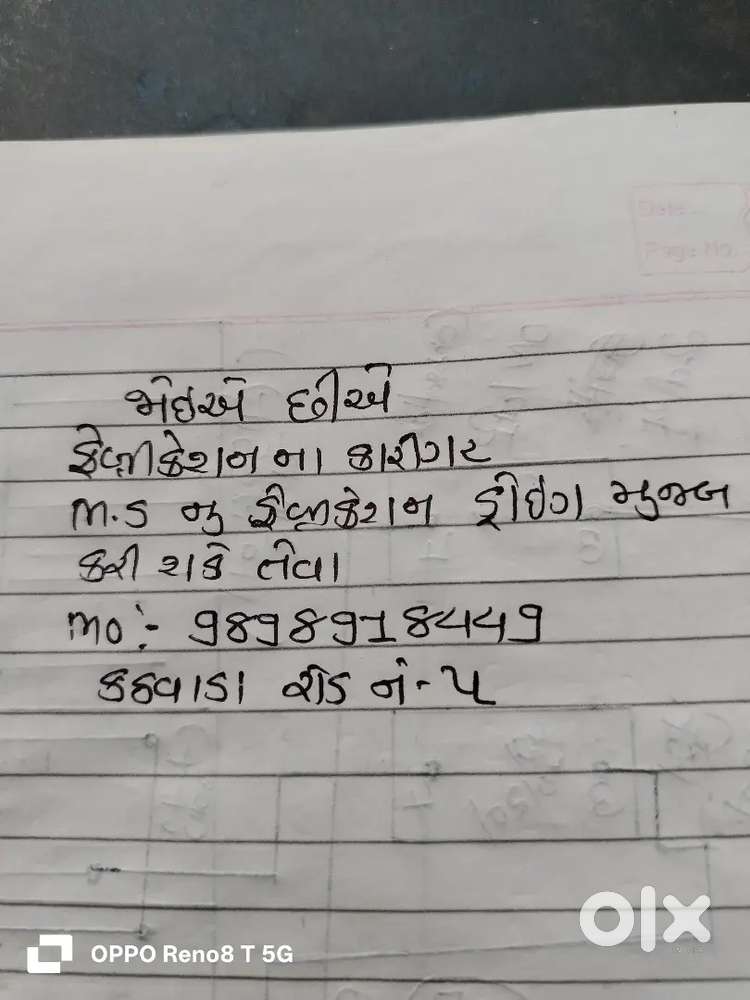 Date
Page No.
જોઇએ છીએ
ફેબ્રીકેશન ના કારીગર
M.S નુ ફેબ્રીકેશન ડ્રોઇંગ મુજબ
કરી શકે તેવા
MO:- 9898918449
કઠવાડા રોડ નં-૫
olx
OPPO Reno8 T 5G